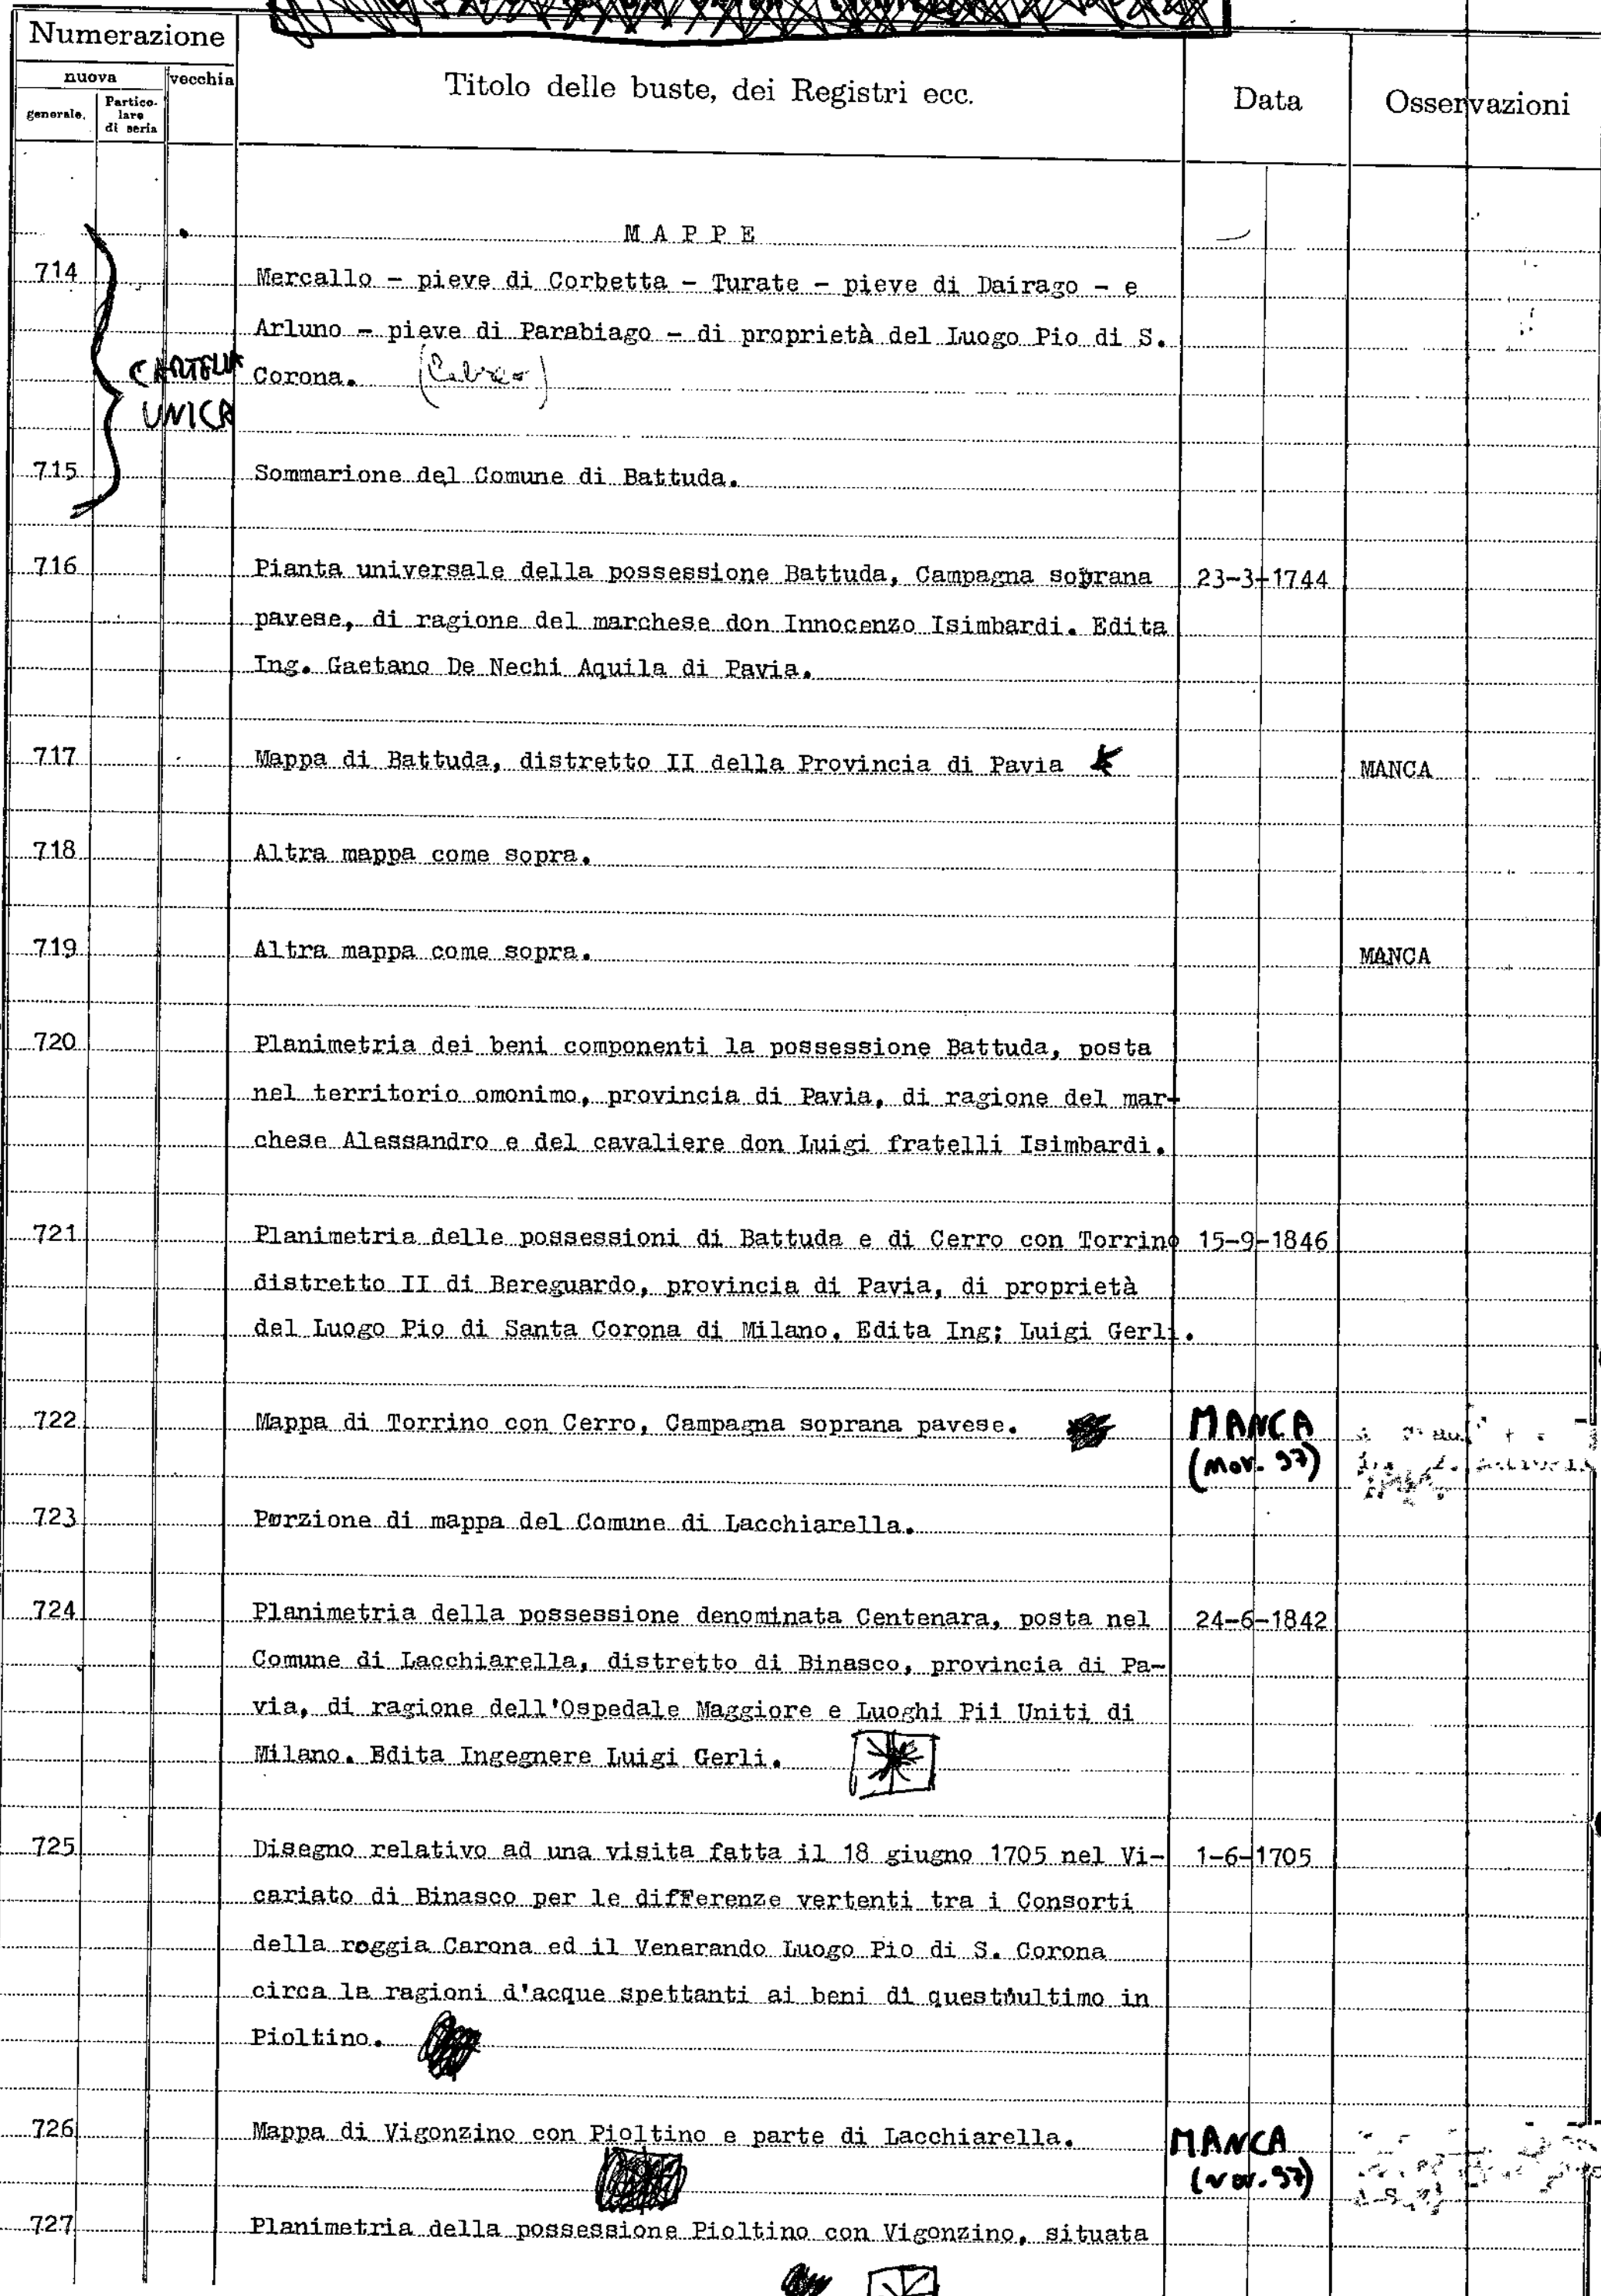 Numerazione
nuova
vecchia
generale.
Partico-
lare
di seria
Titolo delle buste, dei Registri ecc.
Data
Osservazioni
MAPPE
714 Mercallo - pieve di Corbetta - Turate - pieve di Dairago - e
Arluno - pieve di Parabiago - di proprietà del Luogo Pio di S.
CARTELLA
UNICA
Corona.
715 Sommarione del Comune di Battuda.
716 Pianta universale della possessione Battuda, Campagna soprana 23-3-1744
pavese, di ragione del marchese don Innocenzo Isimbardi. Edita
Ing. Gaetano De Nechi Aquila di Pavia.
717 Mappa di Battuda, distretto II della Provincia di Pavia MANCA
718 Altra mappa come sopra.
719 Altra mappa come sopra. MANCA
720 Planimetria dei beni componenti la possessione Battuda, posta
nel territorio omonimo, provincia di Pavia, di ragione del mar-
chese Alessandro e del cavaliere don Luigi fratelli Isimbardi.
721 Planimetria delle possessioni di Battuda e di Cerro con Torrino 15-9-1846
distretto II di Bereguardo, provincia di Pavia, di proprietà
del Luogo Pio di Santa Corona di Milano. Edita Ing; Luigi Gerli.
722 Mappa di Torrino con Cerro, Campagna soprana pavese. MANCA
(nov. 97)
723 Porzione di mappa del Comune di Lacchiarella.
724 Planimetria della possessione denominata Centenara, posta nel 24-6-1842
Comune di Lacchiarella, distretto di Binasco, provincia di Pa-
via, di ragione dell'Ospedale Maggiore e Luoghi Pii Uniti di
Milano. Edita Ingegnere Luigi Gerli.
725 Disegno relativo ad una visita fatta il 18 giugno 1705 nel Vi- 1-6-1705
cariato di Binasco per le differenze vertenti tra i Consorti
della roggia Carona ed il Venerando Luogo Pio di S. Corona
circa la ragioni d'acque spettanti ai beni di quest'ultimo in
Pioltino.
726 Mappa di Vigonzino con Pioltino e parte di Lacchiarella. MANCA
(nov. 97)
727 Planimetria della possessione Pioltino con Vigonzino, situata